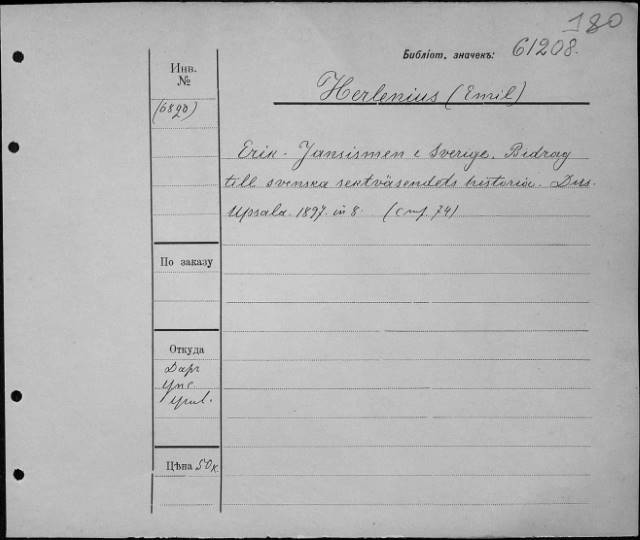 180
Библіот. значекъ: 61208.
Инв.
№
Herlenius (Emil)
(6820)
Erik-Jansismen i Sverige. Bidrag
till svenska sektväsendets historia. Diss.
Upsala. 1897. in 8. (стр. 74)
По заказу
Откуда
Даръ
Упс.
Унив.
Цѣна 50к.